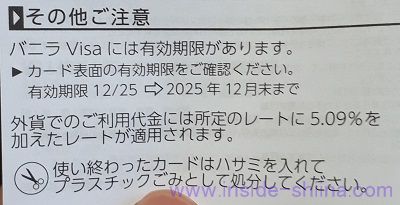 ▶その他ご注意
バニラ Visa には有効期限があります。
▶ カード表面の有効期限をご確認ください。
有効期限 12/25 ⇨ 2025 年 12 月末まで
外貨でのご利用代金には所定のレートに 5.09% を
加えたレートが適用されます。
使い終わったカードはハサミを入れて
プラスチックごみとして処分してください。
www.inside-shiina.com